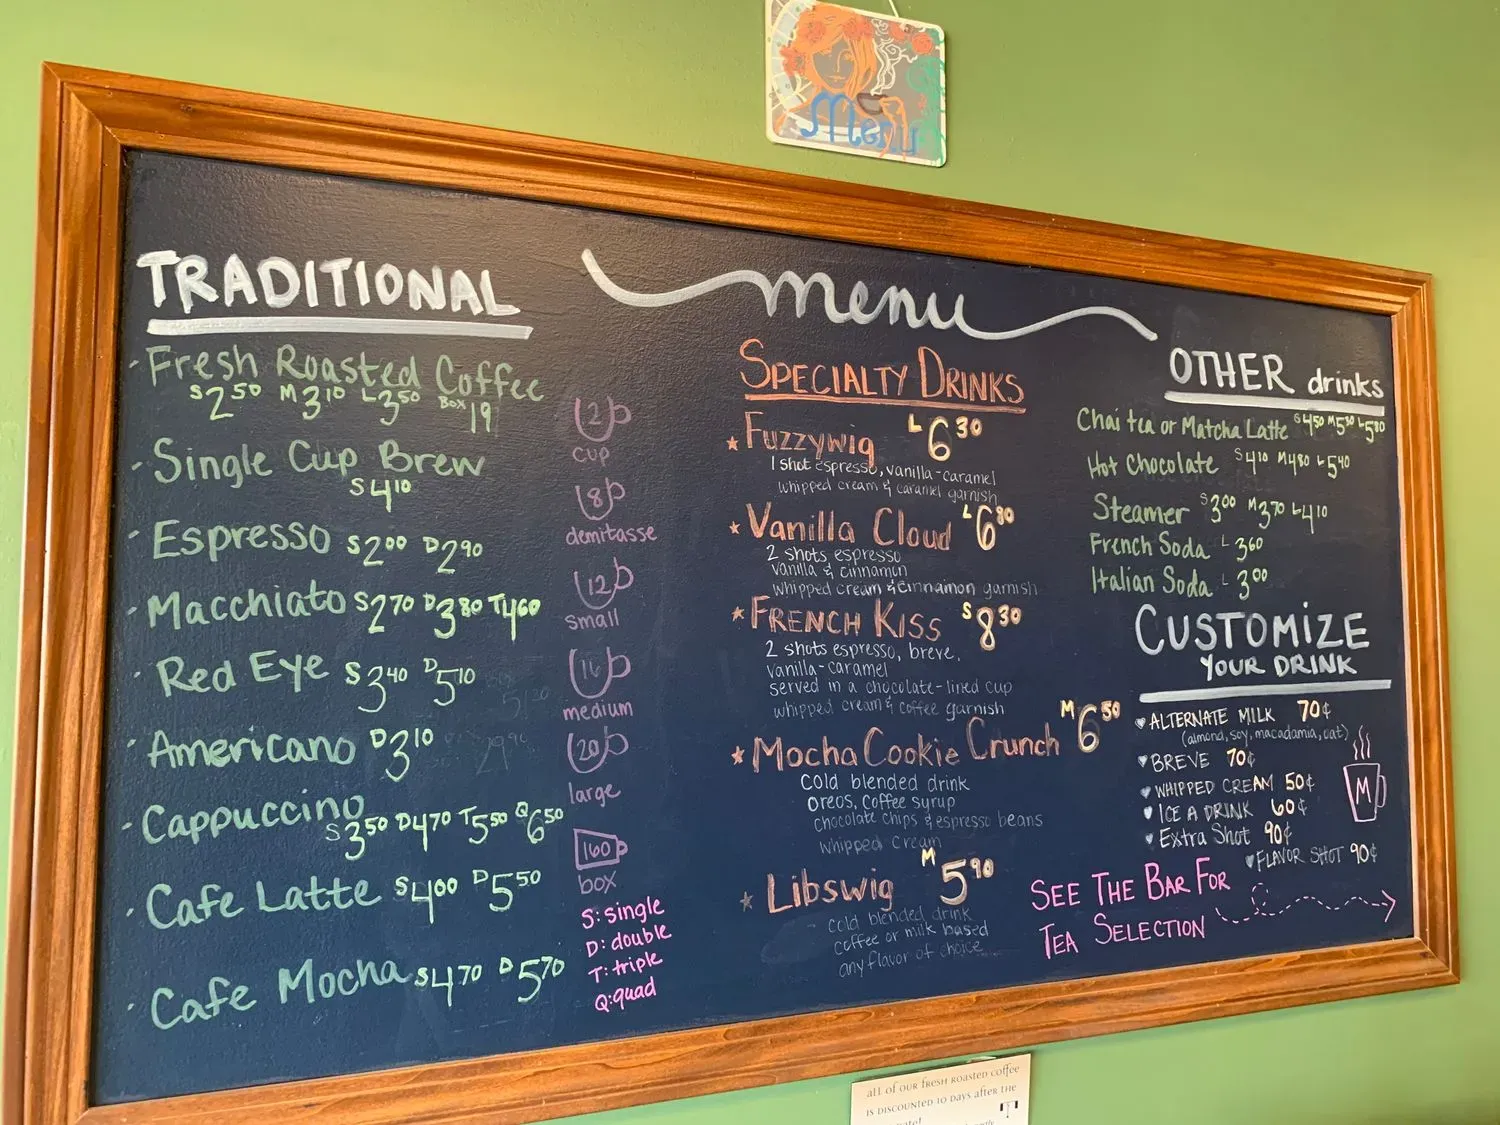 Menu
menu
TRADITIONAL
· Fresh Roasted Coffee
S 2⁵⁰ M 3¹⁰ L 3⁵⁰ Box 19
· Single Cup Brew
S 4¹⁰
· Espresso S 2⁰⁰ D 2⁹⁰
· Macchiato S 2⁷⁰ D 3⁸⁰ T 4⁶⁰
· Red Eye S 3⁴⁰ D 5¹⁰
· Americano D 3¹⁰
· Cappuccino
S 3⁵⁰ D 4⁷⁰ T 5⁵⁰ Q 6⁵⁰
· Cafe Latte S 4⁰⁰ D 5⁵⁰
· Cafe Mocha S 4⁷⁰ D 5⁷⁰
2
cup
8
demitasse
12
small
16
medium
20
large
160
box
S: single
D: double
T: triple
Q: quad
SPECIALTY DRINKS
★ Fuzzywig L 6³⁰
1 shot espresso, vanilla-caramel
whipped cream & caramel garnish
★ Vanilla Cloud L 6⁸⁰
2 shots espresso
vanilla & cinnamon
whipped cream & cinnamon garnish
★ FRENCH KISS S 8³⁰
2 shots espresso, breve,
vanilla-caramel
served in a chocolate-lined cup
whipped cream & coffee garnish
★ Mocha Cookie Crunch M 6⁵⁰
cold blended drink
oreos, coffee syrup
chocolate chips & espresso beans
whipped cream
★ Libswig M 5⁹⁰
cold blended drink
coffee or milk based
any flavor of choice
OTHER drinks
Chai tea or Matcha Latte S 4⁵⁰ M 5³⁰ L 5⁸⁰
Hot Chocolate S 4¹⁰ M 4⁸⁰ L 5⁴⁰
Steamer S 3⁰⁰ M 3⁷⁰ L 4¹⁰
French Soda L 3⁶⁰
Italian Soda L 3⁰⁰
CUSTOMIZE
YOUR DRINK
♥ ALTERNATE MILK 70¢
(almond, soy, macadamia, oat)
♥ BREVE 70¢
♥ WHIPPED CREAM 50¢
♥ ICE A DRINK 60¢
♥ Extra Shot 90¢
♥ FLAVOR SHOT 90¢
M
SEE THE BAR FOR
TEA SELECTION
all of our fresh roasted coffee
is discounted 10 days after the